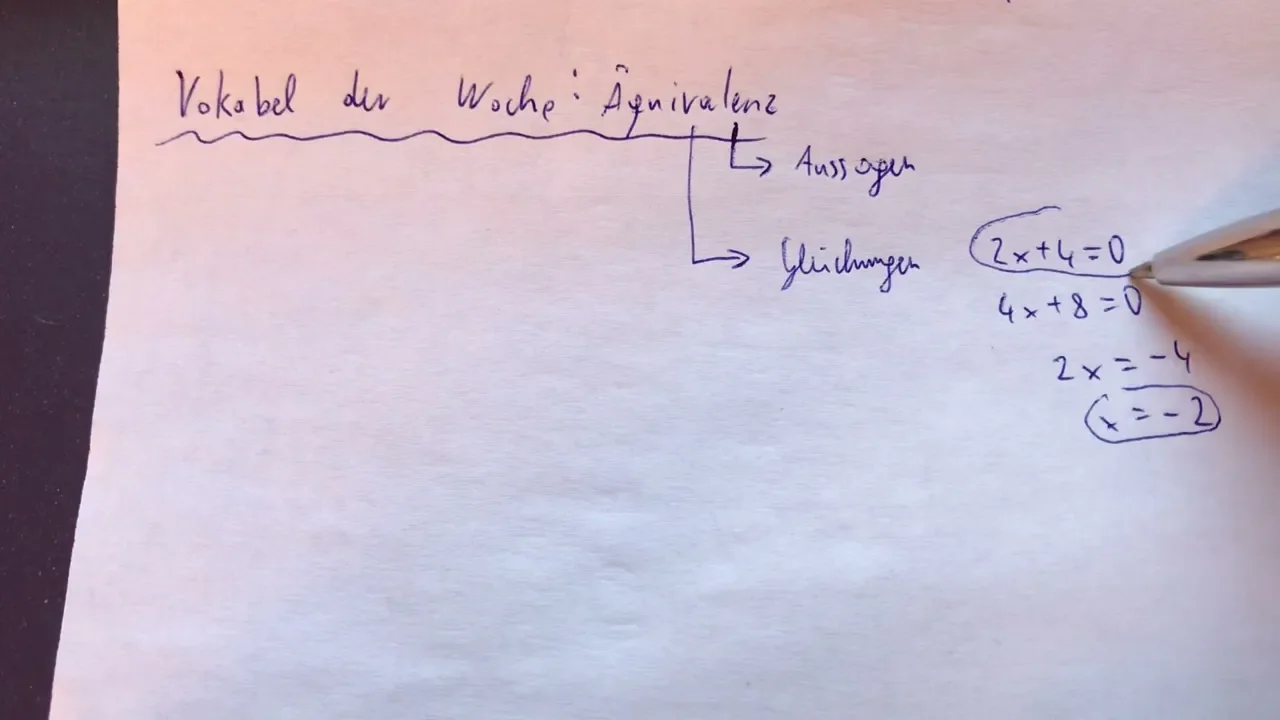 Vokabel der Woche: Äquivalenz
Aussagen
Gleichungen 2x+4=0
4x+8=0
2x=-4
x=-2